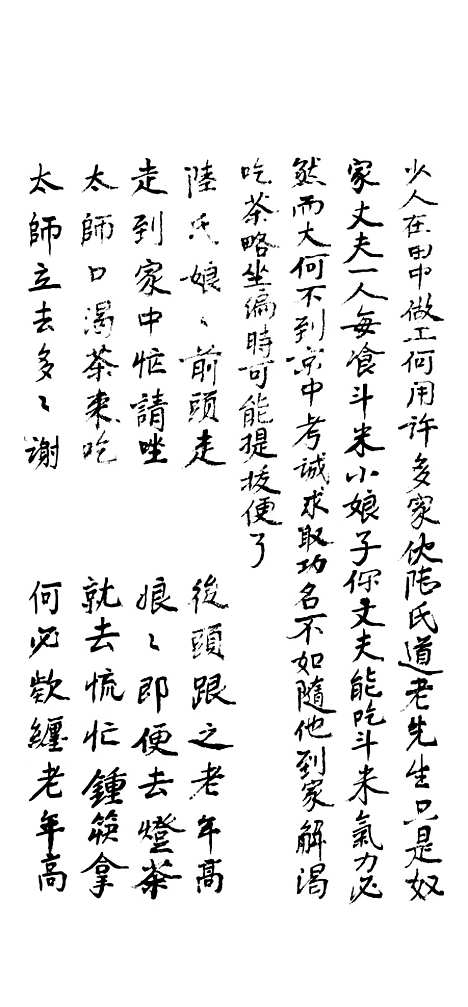 少人在田中做工何用許多家伙陸氏道老先生只是奴
家丈夫一人每飡斗米小娘子你丈夫能吃斗米氣力必
然而大何不到京中考誠求取功名不如隨他到家解渴
吃茶略坐偏時可能提拔便了
陸氏娘〻前頭走 後頭跟之老年高
走到家中忙請坐 娘〻即便去燈茶
太師口渴茶來吃 就去慌忙鍾筷拿
太師立去多〻謝 何必歎纏老年高